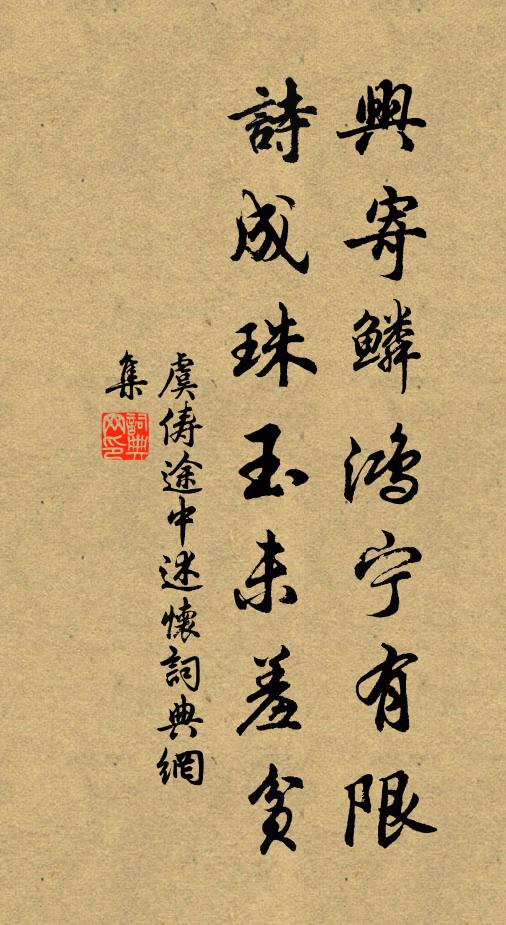 興寄鱗鴻宁有限
詩成珠玉未羞貧
虞儔途中述懷詞典網
集
詞典網印